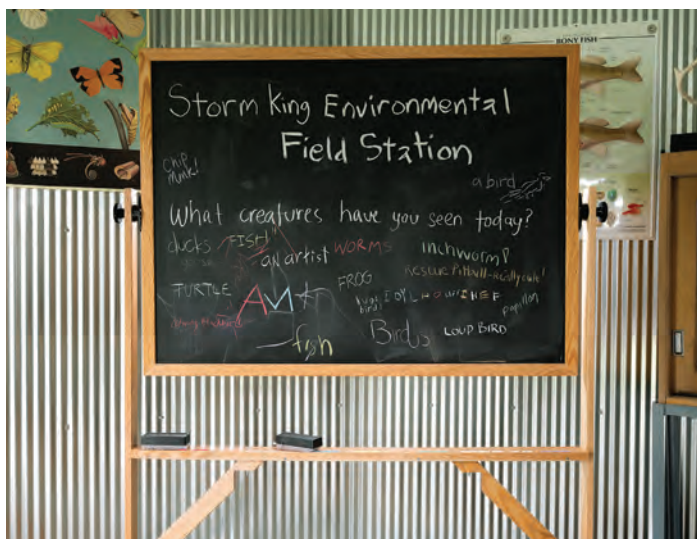 BONY FISH
Storm King Environmental
Field Station
Chip
Munk!
a bird
What creatures have you seen today?
ducks FISH an artist WORMS inchworm!
Rescue Pitbull-Really cute!
TURTLE AMA FROG
bird!
papillon
fish Birds LOUD BIRD